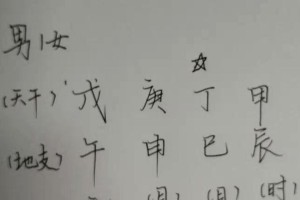 男/女
☆
(天干) 戊 庚 丁 甲
(地支) 午 申 巳 辰
(月) (日) (时)